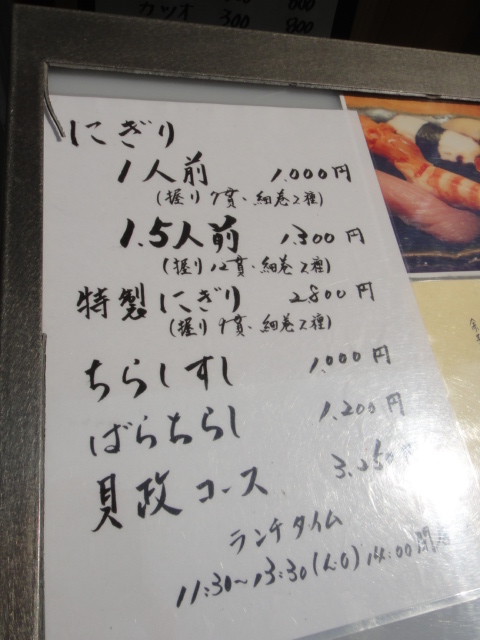 カツオ 300 800
にぎり
1人前 1.000円
(握り7貫、細巻2種)
1.5人前 1.300円
(握り12貫、細巻2種)
特製にぎり 2.800円
(握り9貫、細巻2種)
ちらしすし 1.000円
ばらちらし 1.200円
貝政コース 3.250円
ランチタイム
11:30〜13:30(L.O) 14:00閉店